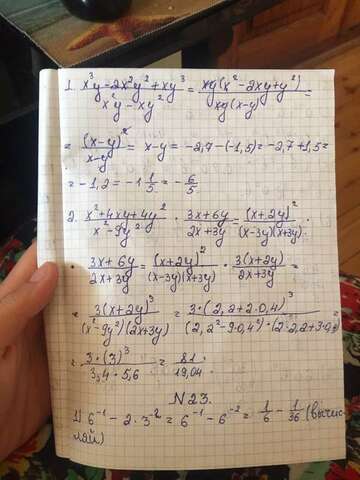 1. (x³y-2x²y²+xy³)/(x²y-xy²) = (xy(x²-2xy+y²))/(xy(x-y)) =
= (x-y)²/(x-y) = x-y = -2,7-(-1,5)= -2,7+1,5=
= -1,2 = -1 1/5 = -6/5
2. (x²+4xy+4y²)/(x²-9y²) · (3x+6y)/(2x+3y) = (x+2y)²/((x-3y)(x+3y)) ·
· (3x+6y)/(2x+3y) = (x+2y)²/((x-3y)(x+3y)) · 3(x+2y)/(2x+3y) =
= 3(x+2y)³/((x²-9y²)(2x+3y)) = 3·(2,2+2·0,4)³/((2,2²-9·0,4²)·(2·2,2+3·0,4)) =
= 3·(3)³/(3,4·5,6) = 81/19,04.
N23.
1) 6⁻¹ - 2·3⁻² = 6⁻¹ - 6⁻² = 1/6 - 1/36 (вычис-
ляй)